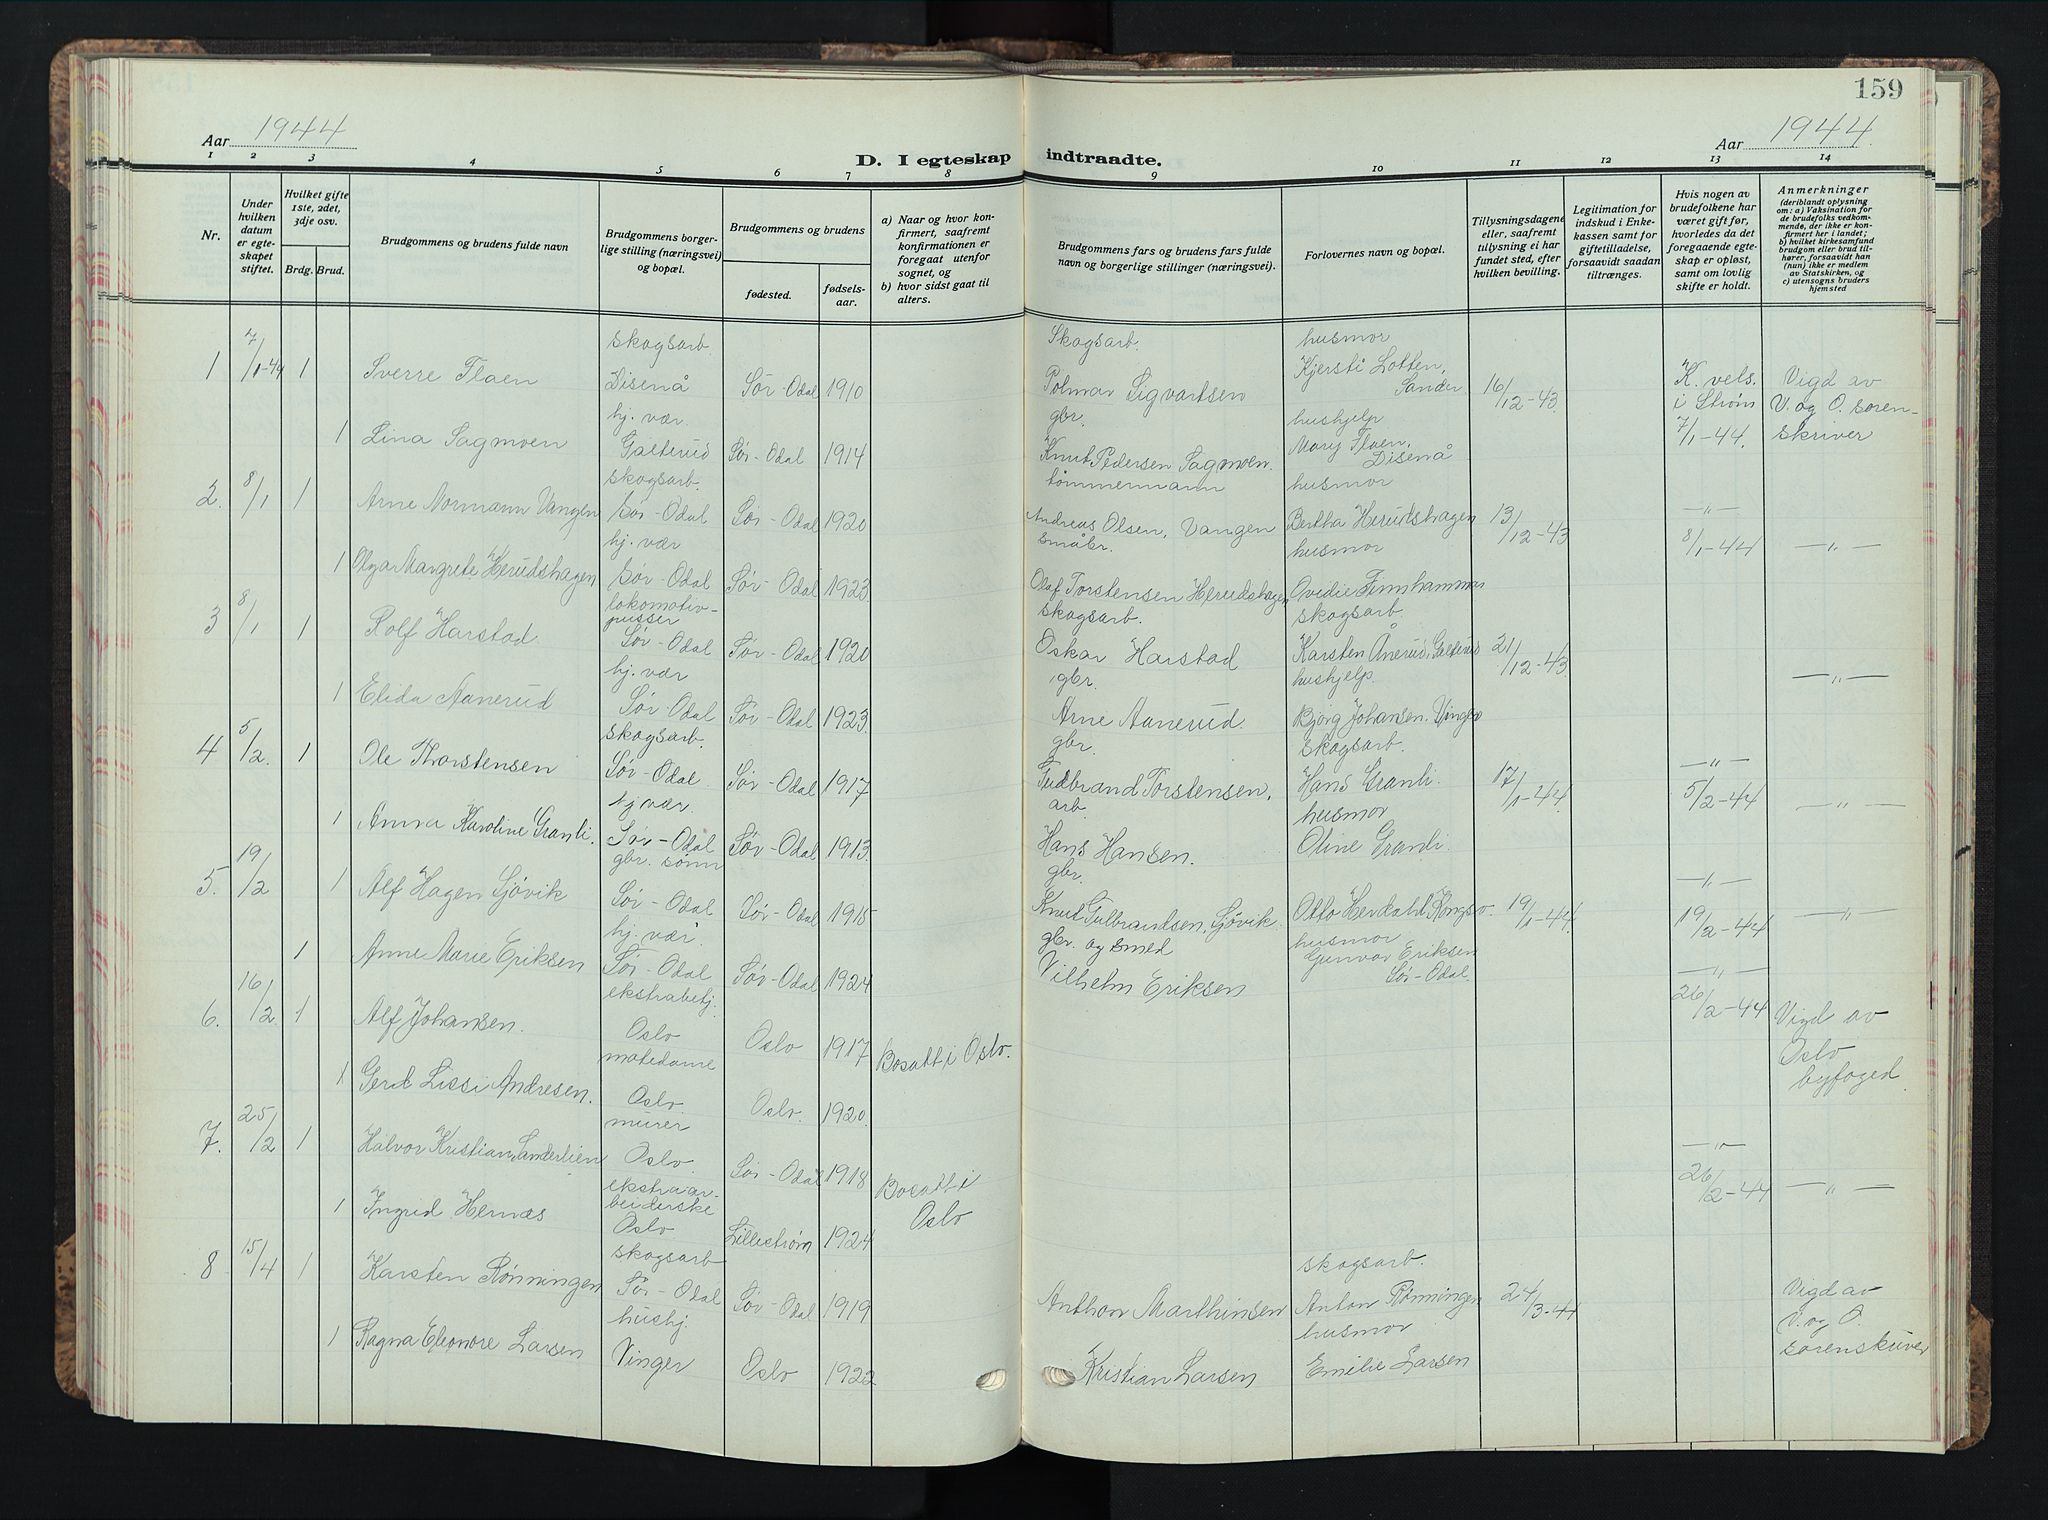 159
Aar 1944
Aar 1944.
D. I egteskap indtraadte.
1 2 3 4 5 6 7 8 9 10 11 12 13 14
Nr.
Under hvilken datum er egteskapet stiftet.
Hvilket gifte 1ste, 2det, 3dje osv.
Brdg. Brud.
Brudgommens og brudens fulde navn
Brudgommens borgerlige stilling (næringsvei) og bopæl.
Brudgommens og brudens
fødested.
fødselsaar.
a) Naar og hvor konfirmert, saafremt konfirmationen er foregaat utenfor sognet, og
b) hvor sidst gaat til alters.
Brudgommens fars og brudens fars fulde navn og borgerlige stillinger (næringsvei).
Forlovernes navn og bopæl.
Tillysningsdagene eller, saafremt tillysning ei har fundet sted, efter hvilken bevilling.
Legitimation for indskud i Enkekassen samt for giftetilladelse, forsaavidt saadan tiltrænges.
Hvis nogen av brudefolkene har været gift før, hvorledes da det foregaaende egteskap er opløst, samt om lovlig skifte er holdt.
Anmerkninger
(deriblandt oplysning om: a) Vaksination for de brudefolks vedkommende, der ikke er konfirmert her i landet; b) hvilket kirkesamfund brudgom eller brud tilhører, forsaavidt han (hun) ikke er medlem av Statskirken, og c) utensogns bruders hjemsted
1 7/1-44 1 Sverre Flaen skogsarb. Disenå Sør-Odal 1910 Skogsarb. Polmar Sigvartsen husmor Kjersti Lotten, Sander 16/12-43. K. vels. i Strøm 7/1-44. Vigd av V. og O. sorenskriver
1 Lina Sagmoen hj. vær Galterud Sør-Odal 1914 gbr. Knut Pedersen Sagmoen. hushjelp Mary Flaen, Disenå
2. 8/1 1 Arne Normann Vangen skogsarb. Sør-Odal Sør-Odal 1920 tømmermann Andreas Olsen, Vangen husmor Bertha Herudshagen 13/12-43 —"— 8/1-44 —"—
1 Olga Margrete Herudshagen hj. vær Sør-Odal Sør-Odal 1923 småbr. Olaf Torstensen Herudshagen husmor Ovidie Finnhammas
3 8/1 1 Rolf Harstad. lokomotivpusser Sør-Odal Sør-Odal 1920 skogsarb. Oskar Harstad skogsarb. Karsten Ånerud, Galterud 21/12-43 —"—
1 Elida Aanerud hj. vær Sør-Odal Sør-Odal 1923. gbr. Arne Aanerud. hushjelp. Bjørg Johansen,
4 5/2. 1 Ole Thorstensen skogsarb. Sør-Odal. Sør-Odal 1917 gbr. Gudbrand Torstensen, skogsarb. Hans Granli. 17/1-44. —"— 5/2-44 —"—
1 Anna Karoline Granli. hj vær. Sør-Odal Sør-Odal 1913. arb. Hans Hansen. husmor Oline Granli.
5. 19/2 1 Alf Hagen Sjøvik gbr. sønn Sør-Odal Sør-Odal 1915 gbr. Knut Gulbrandsen, Sjøvik. Otto Herdahl, 19/1-44. —"— 19/2-44 —"—
1 Anne Marie Eriksen hj. vær. Sør-Odal Sør-Odal 1924 gbr. og smed Vilhelm Eriksen husmor Gunvor Eriksen Sør-Odal.
6. 16/2 1 Alf Johansen. ekstrabetj. Oslo Oslo 1917 Bosatt i Oslo. —"— 26/2-44 Vigd av Oslo byfoged.
1 Gerd Lissi Andresen. motedame Oslo. Oslo. 1920.
7. 25/2 1 Halvor Kristian Sanderlien murer Oslo. Sør-Odal 1918 Bosatt i Oslo —"— 26/2-44 —"—
1 Ingrid Hernæs ekstraarbeiderske Oslo Lillestrøm 1924
8 15/4 1 Karsten Rønningen skogsarb Sør-Odal Sør-Odal 1919 Anthon Marthinsen skogsarb. Anton Rønningen 24/3-44 Vigd av V. og O. sorenskriver
1 Ragna Eleonore Larsen hushj. Vinger Oslo 1922 Kristian Larsen husmor Emilie Larsen